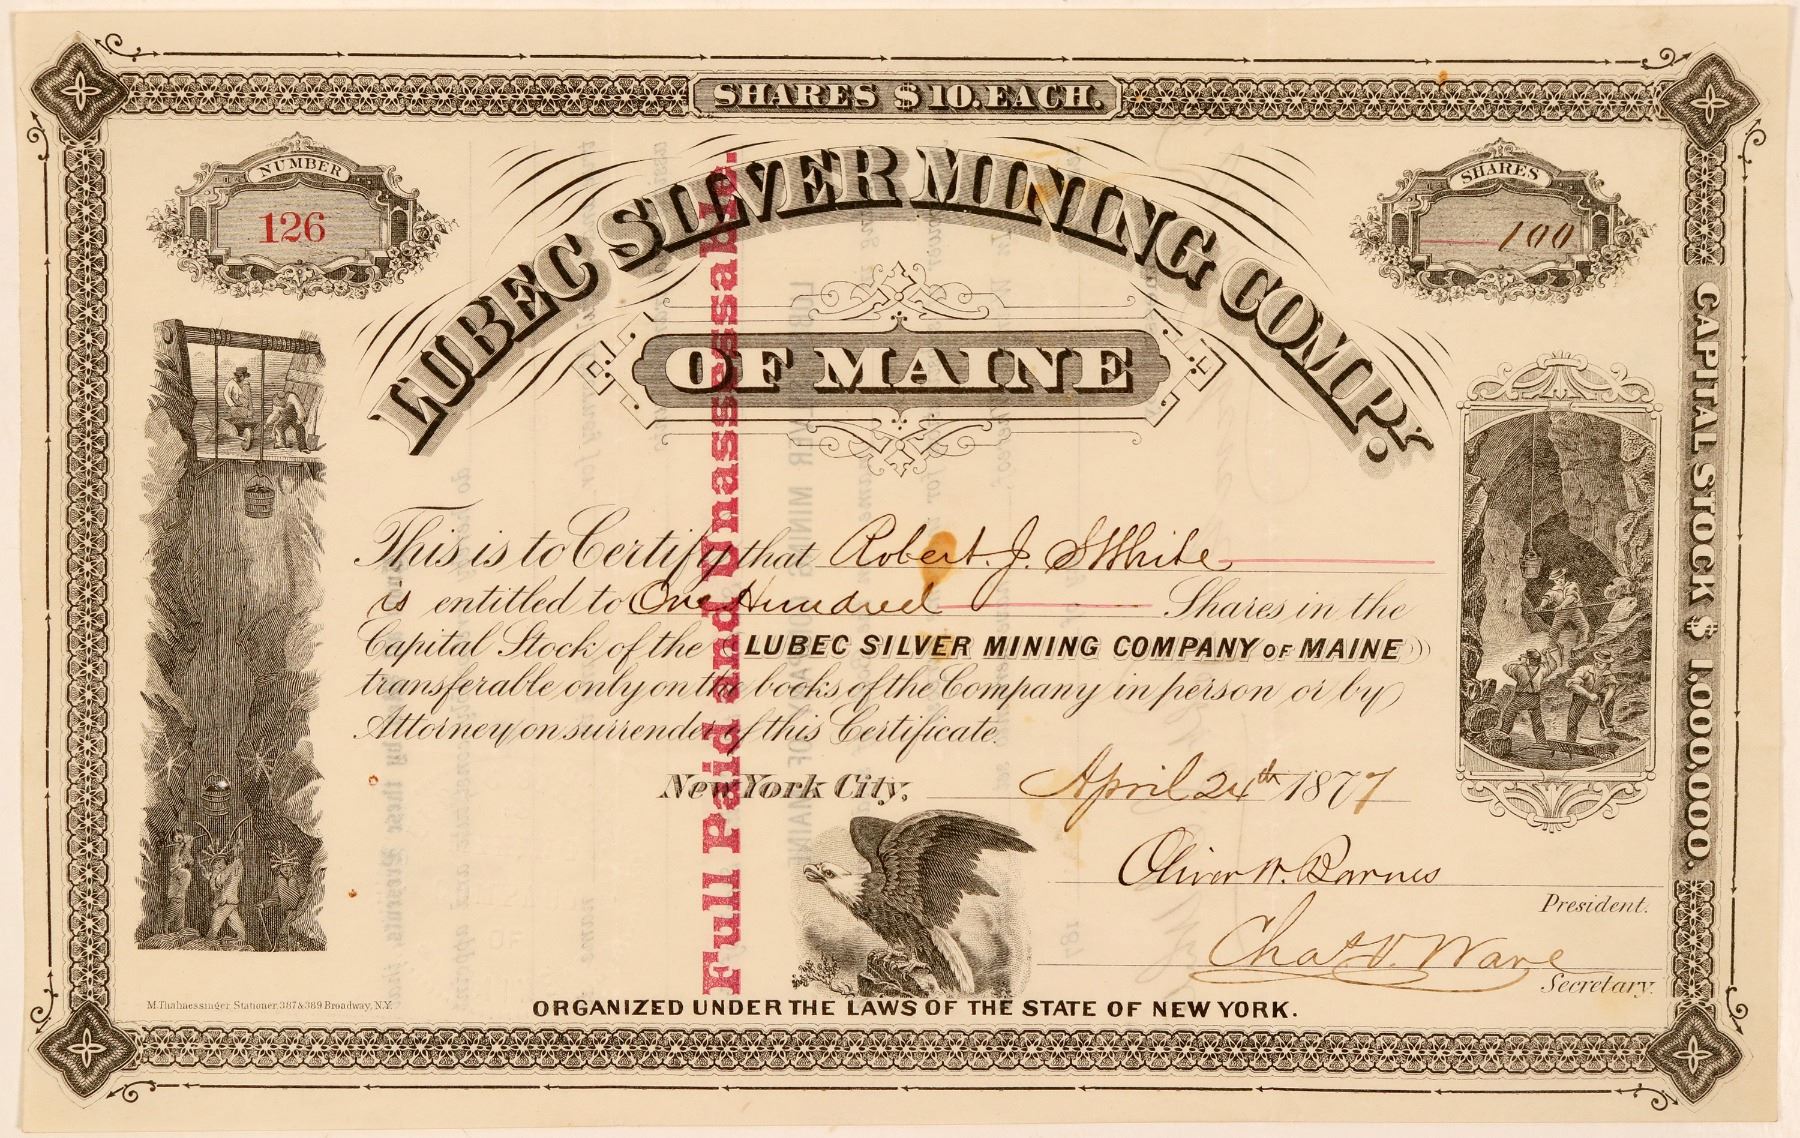 SHARES $10. EACH.
NUMBER
126
SHARES
100
LUBEC SILVER MINING COMPY.
OF MAINE
Full Paid and Unassessable.
CAPITAL STOCK $1,000,000.
This is to Certify that Robert. J. S White
is entitled to One Hundred Shares in the
Capital Stock of the LUBEC SILVER MINING COMPANY OF MAINE
transferable only on the books of the Company in person or by
Attorney on surrender of this Certificate.
New York City, April 24th 1877
Oliver W. Barnes
President.
Chas. V. Ware
Secretary.
M. Thalmessinger, Stationer, 387 & 389 Broadway, N.Y.
ORGANIZED UNDER THE LAWS OF THE STATE OF NEW YORK.